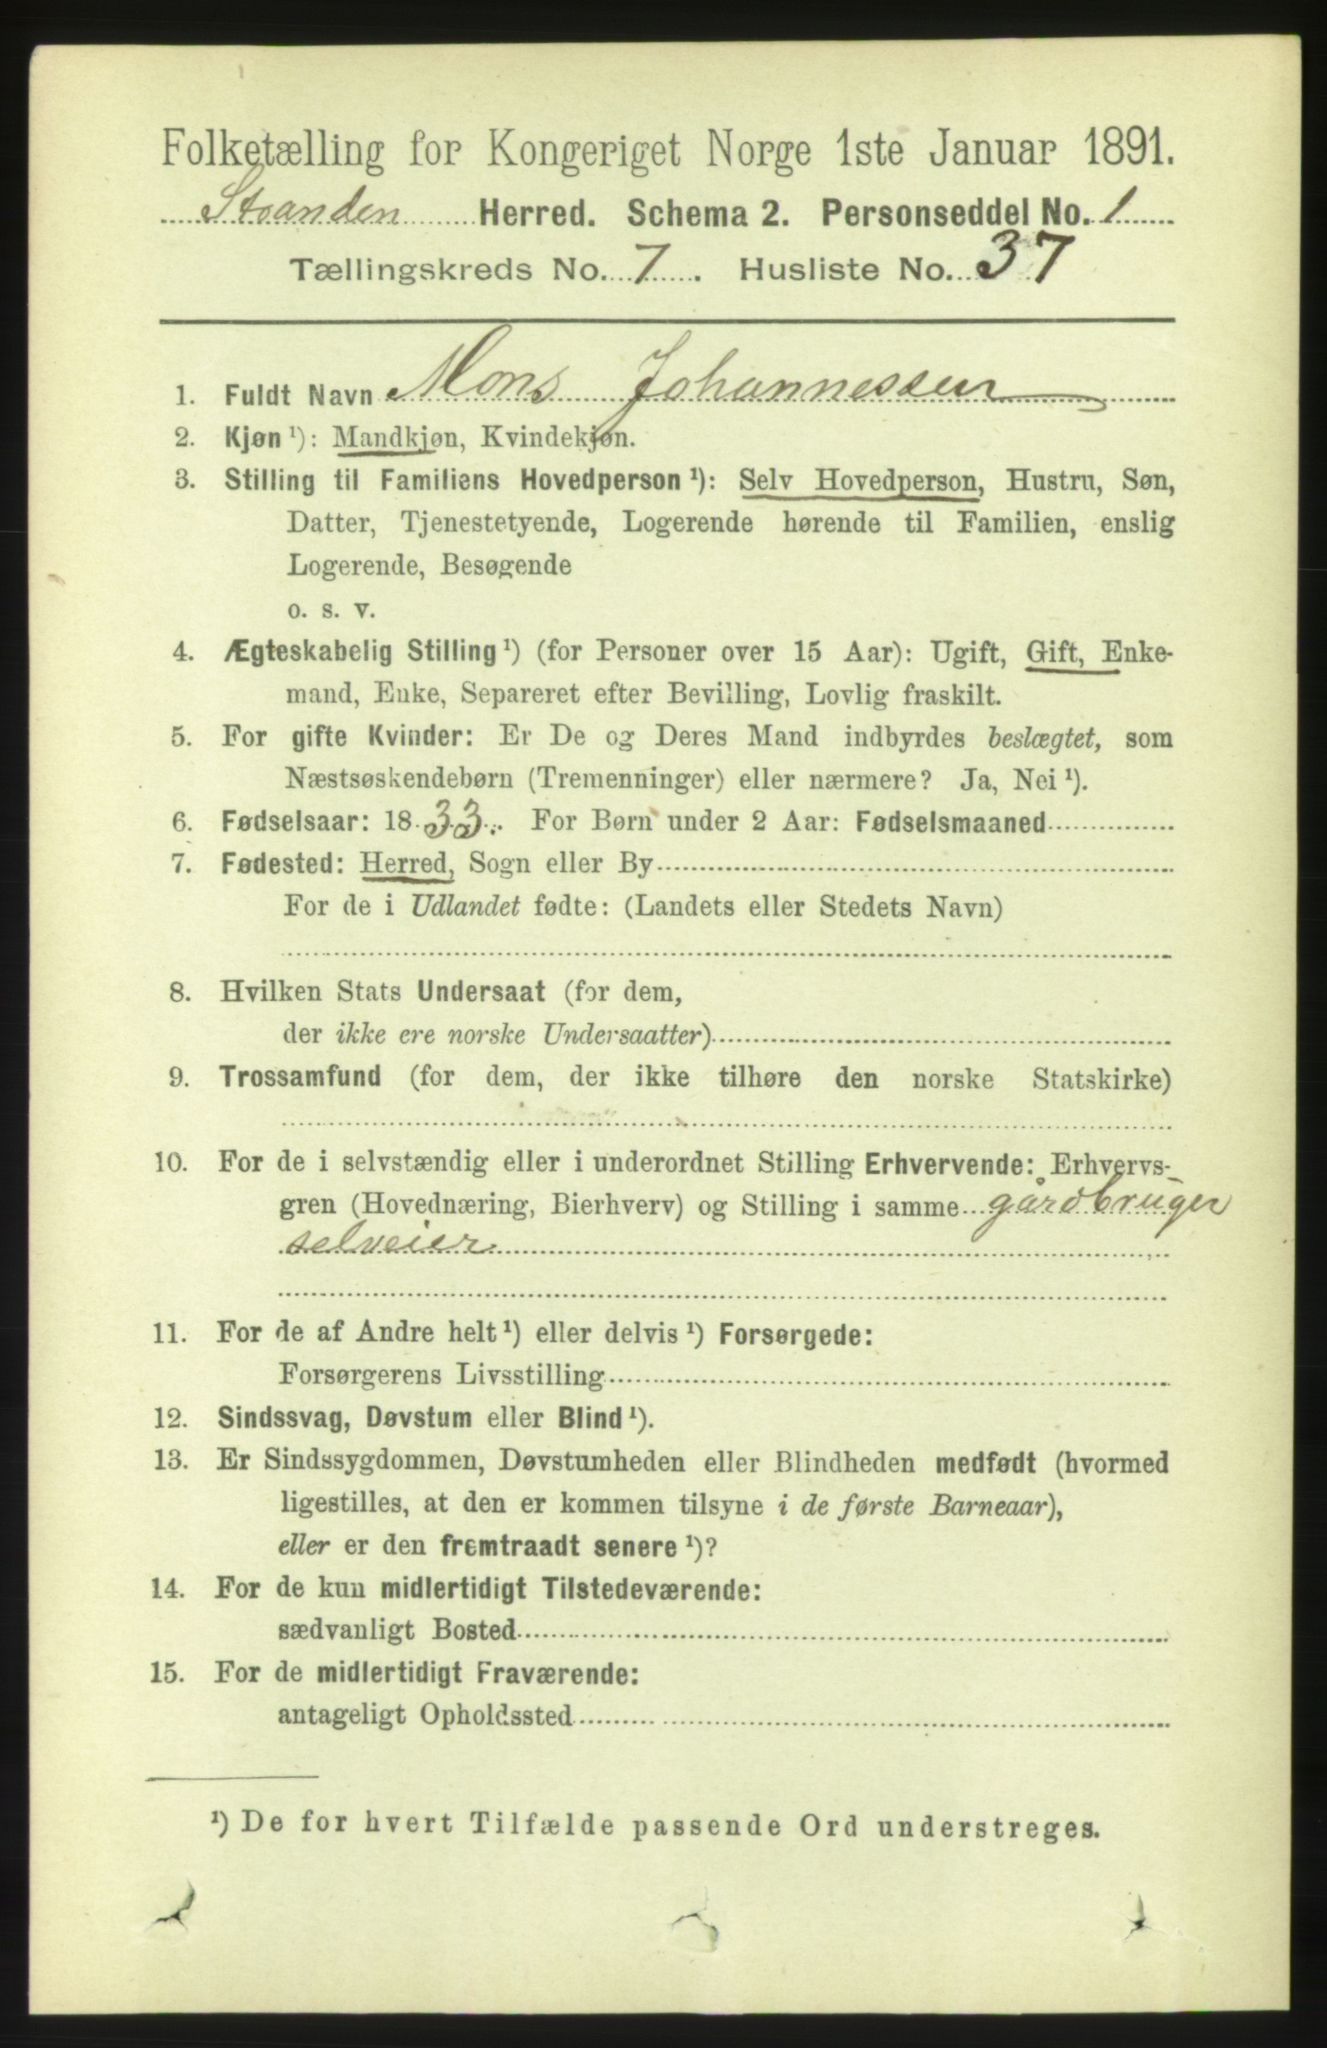 Folketælling for Kongeriget Norge 1ste Januar 1891.
Stranden Herred. Schema 2. Personseddel No. 1
Tællingskreds No. 7. Husliste No. 37
1. Fuldt Navn Mons Johannessen
2. Kjøn ¹): Mandkjøn, Kvindekjøn.
3. Stilling til Familiens Hovedperson ¹): Selv Hovedperson, Hustru, Søn,
Datter, Tjenestetyende, Logerende hørende til Familien, enslig
Logerende, Besøgende
o. s. v.
4. Ægteskabelig Stilling ¹) (for Personer over 15 Aar): Ugift, Gift, Enke-
mand, Enke, Separeret efter Bevilling, Lovlig fraskilt.
5. For gifte Kvinder: Er De og Deres Mand indbyrdes beslægtet, som
Næstsøskendebørn (Tremenninger) eller nærmere? Ja, Nei ¹).
6. Fødselsaar: 1833. For Børn under 2 Aar: Fødselsmaaned
7. Fødested: Herred, Sogn eller By
For de i Udlandet fødte: (Landets eller Stedets Navn)
8. Hvilken Stats Undersaat (for dem,
der ikke ere norske Undersaatter)
9. Trossamfund (for dem, der ikke tilhøre den norske Statskirke)
10. For de i selvstændig eller i underordnet Stilling Erhvervende: Erhvervs-
gren (Hovednæring, Bierhverv) og Stilling i samme gårdbruger
selveier
11. For de af Andre helt ¹) eller delvis ¹) Forsørgede:
Forsørgerens Livsstilling
12. Sindssvag, Døvstum eller Blind ¹).
13. Er Sindssygdommen, Døvstumheden eller Blindheden medfødt (hvormed
ligestilles, at den er kommen tilsyne i de første Barneaar),
eller er den fremtraadt senere ¹)?
14. For de kun midlertidigt Tilstedeværende:
sædvanligt Bosted
15. For de midlertidigt Fraværende:
antageligt Opholdssted
¹) De for hvert Tilfælde passende Ord understreges.